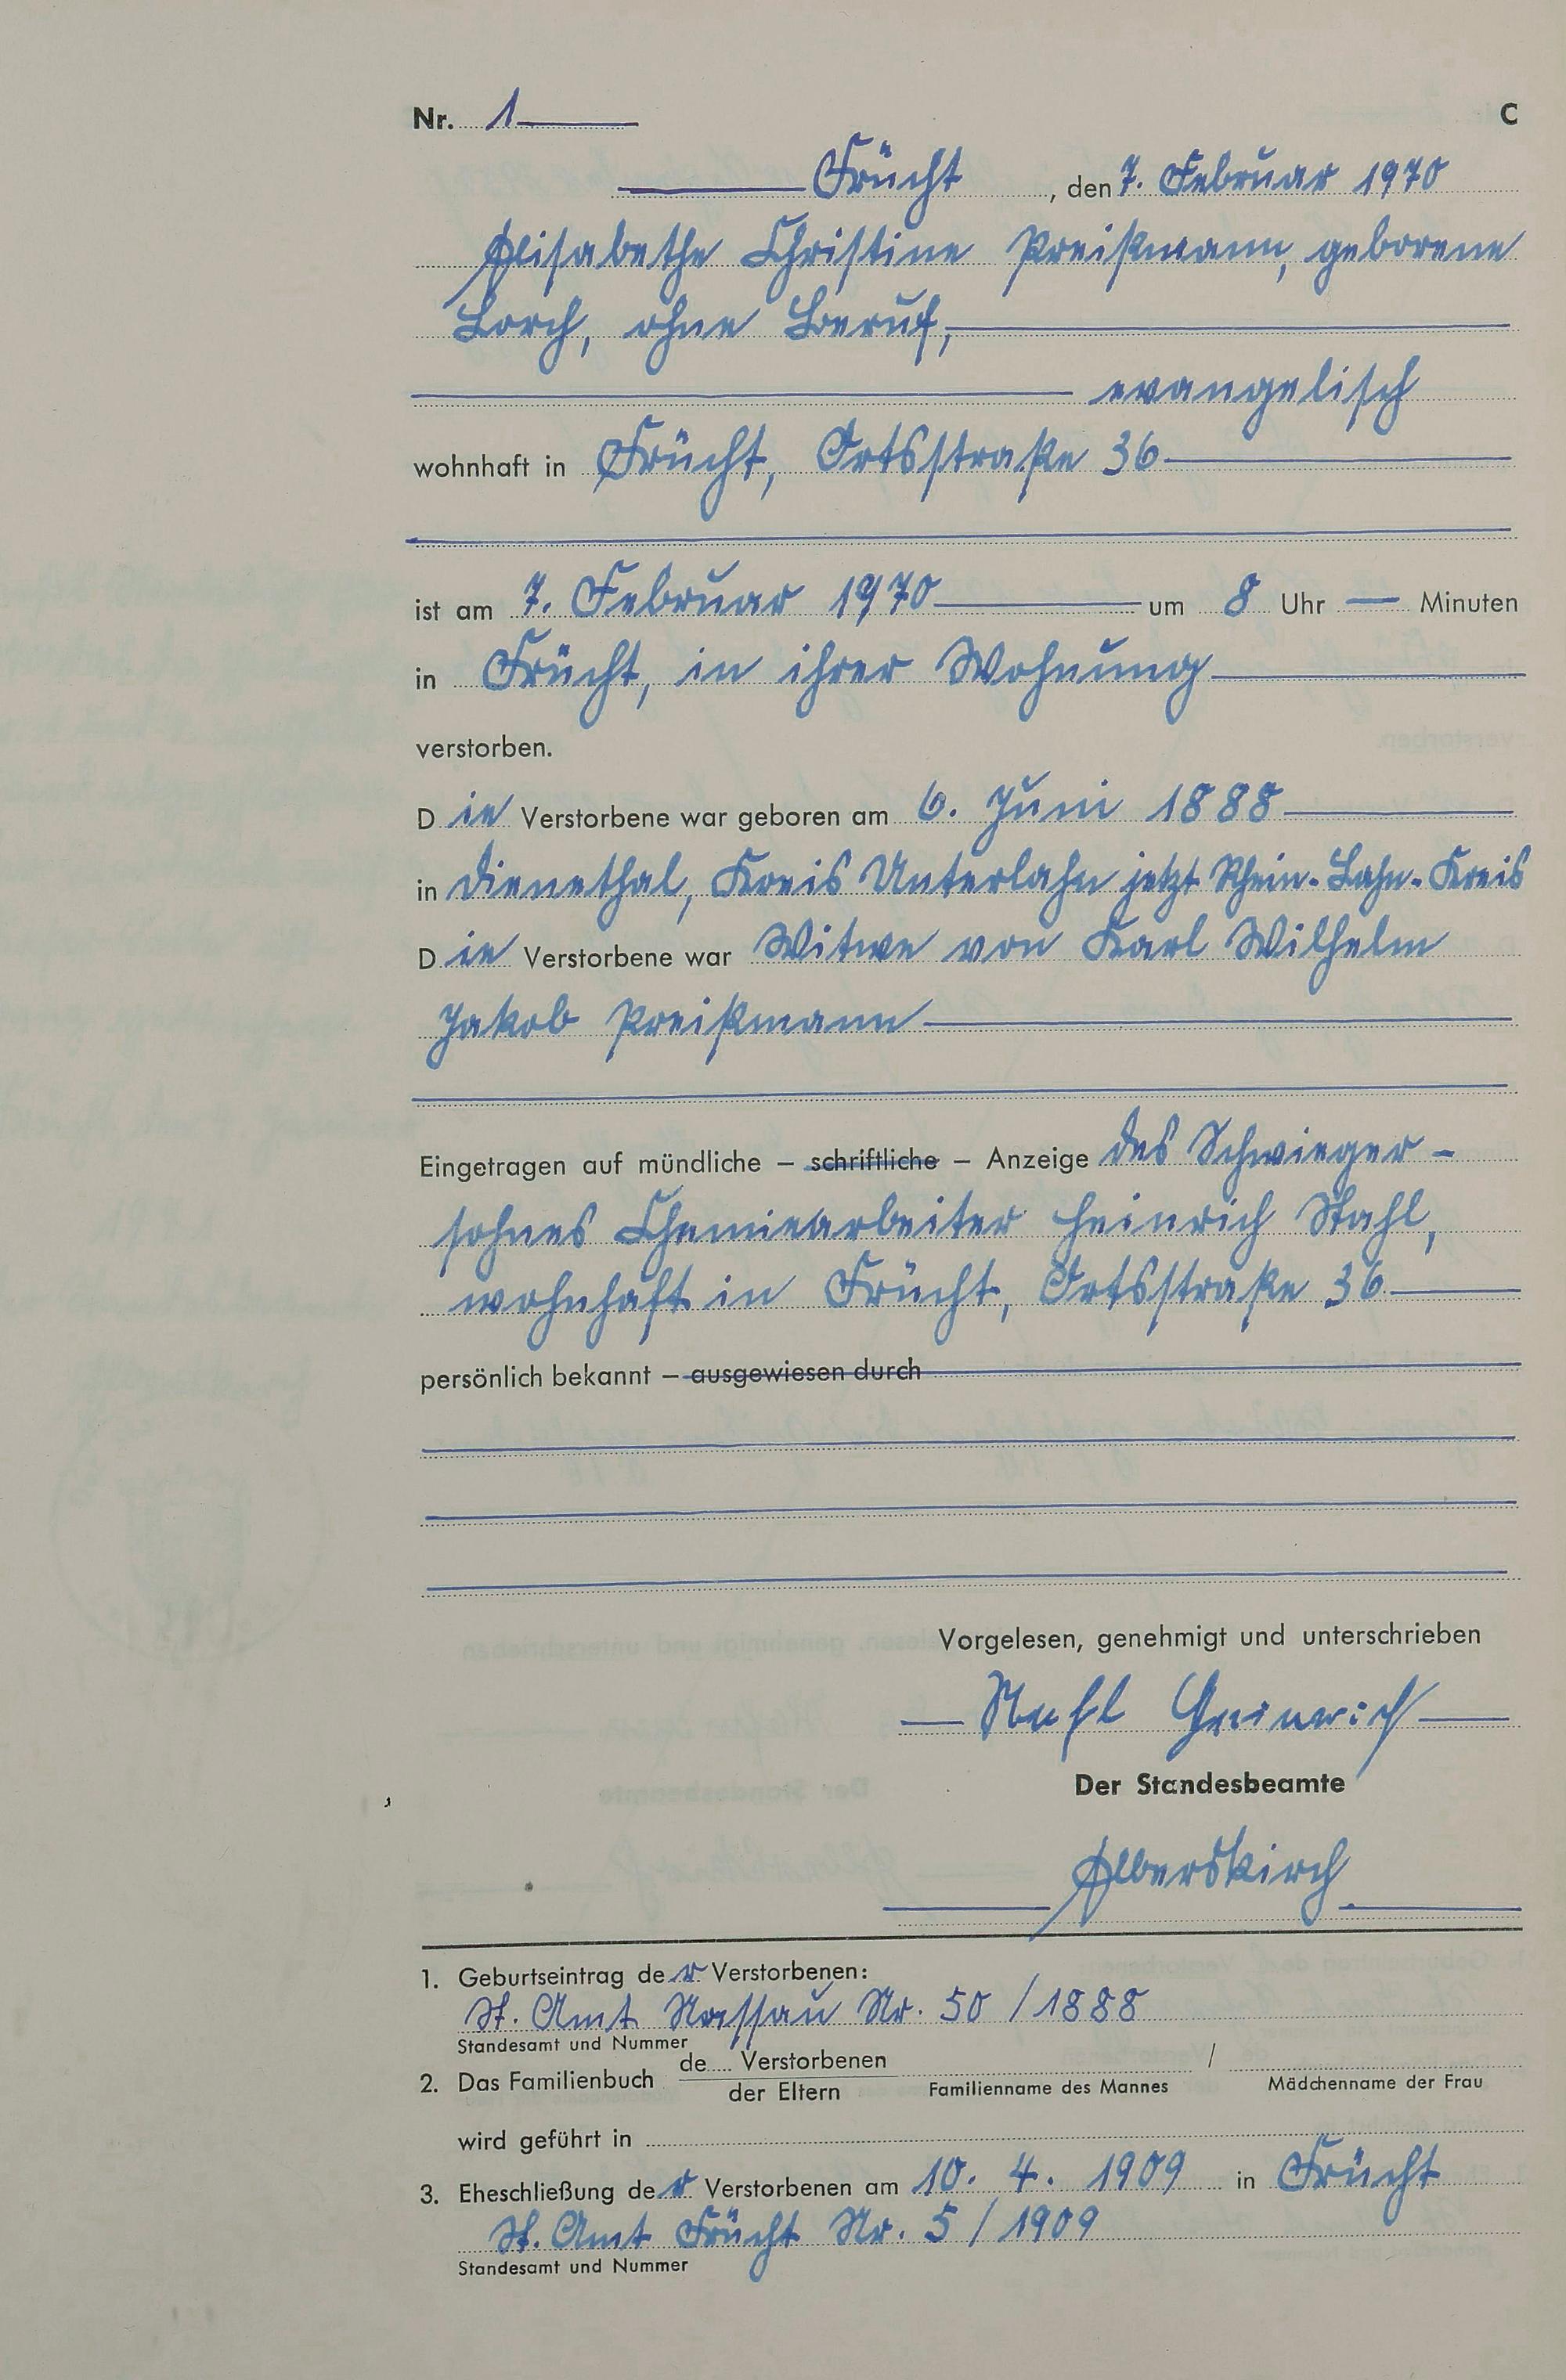 Nr. 1 C
Frücht, den 7. Februar 1970
Elisabethe Christine Preißmann, geborene
Lorch, ohne Beruf,
evangelisch
wohnhaft in Frücht, Ortsstraße 36
ist am 7. Februar 1970 um 8 Uhr — Minuten
in Frücht, in ihrer Wohnung
verstorben.
Die Verstorbene war geboren am 6. Juni 1888
in Dienethal, Kreis Unterlahn jetzt Rhein-Lahn-Kreis
Die Verstorbene war Witwe von Karl Wilhelm
Jakob Preißmann
Eingetragen auf mündliche – schriftliche – Anzeige des Schwieger-
sohnes Chemiearbeiter Heinrich Stahl,
wohnhaft in Frücht, Ortsstraße 36
persönlich bekannt – ausgewiesen durch
Vorgelesen, genehmigt und unterschrieben
Stahl Heinrich
Der Standesbeamte
Elberskirch
1. Geburtseintrag der Verstorbenen:
St. Amt Nassau Nr. 50 / 1888
Standesamt und Nummer
2. Das Familienbuch de.... Verstorbenen / der Eltern
Familienname des Mannes / Mädchenname der Frau
wird geführt in
3. Eheschließung der Verstorbenen am 10. 4. 1909 in Frücht
St. Amt Frücht Nr. 5 / 1909
Standesamt und Nummer